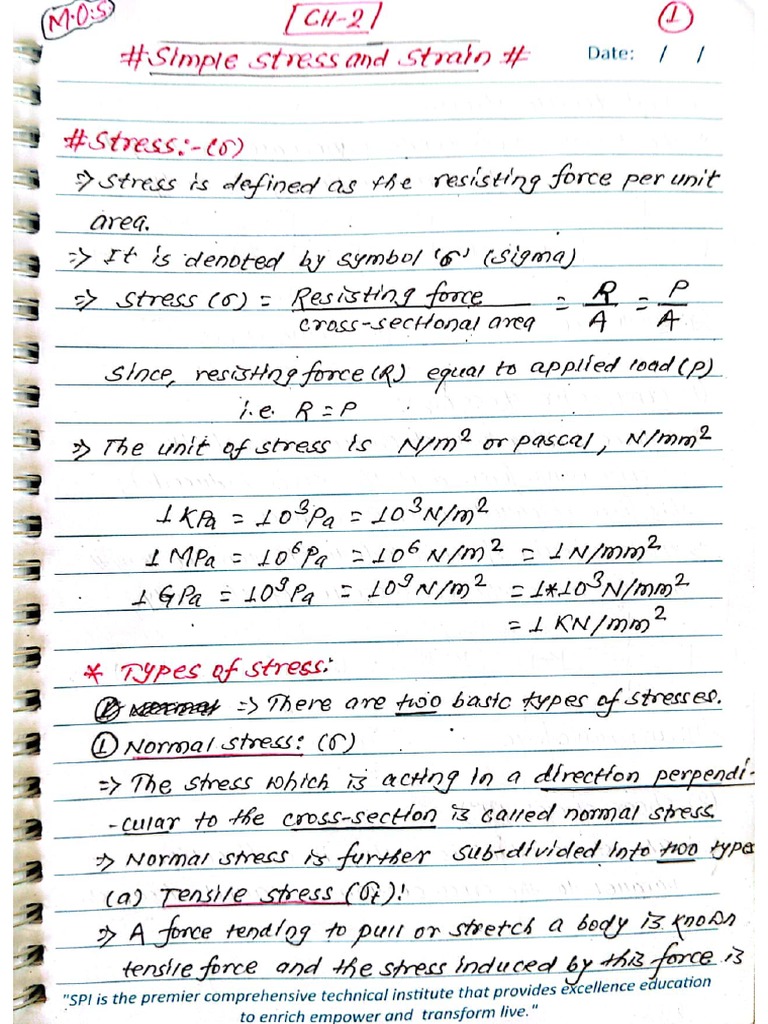 M.O.S
CH-2
1
# Simple stress and strain #
Date: / /
# Stress:- (σ)
⇒ Stress is defined as the resisting force per unit
area.
⇒ It is denoted by symbol 'σ' (sigma)
⇒ Stress (σ) = Resisting force / cross-sectional area = R/A = P/A
Since, resisting force (R) equal to applied load (P)
i.e. R = P
⇒ The unit of stress is N/m² or pascal, N/mm²
1 KPa = 10³Pa = 10³N/m²
1 MPa = 10⁶Pa = 10⁶ N/m² = 1N/mm²
1 GPa = 10⁹Pa = 10⁹ N/m² = 1*10³N/mm²
= 1 KN/mm²
* Types of stress:
⇒ There are two basic types of stresses.
① Normal stress: (σ)
⇒ The stress which is acting in a direction perpendi-
-cular to the cross-section is called normal stress.
⇒ Normal stress is further sub-divided into two type
(a) Tensile stress (σt):
⇒ A force tending to pull or stretch a body is known
tensile force and the stress induced by this force is
"SPI is the premier comprehensive technical institute that provides excellence education
to enrich empower and transform live."